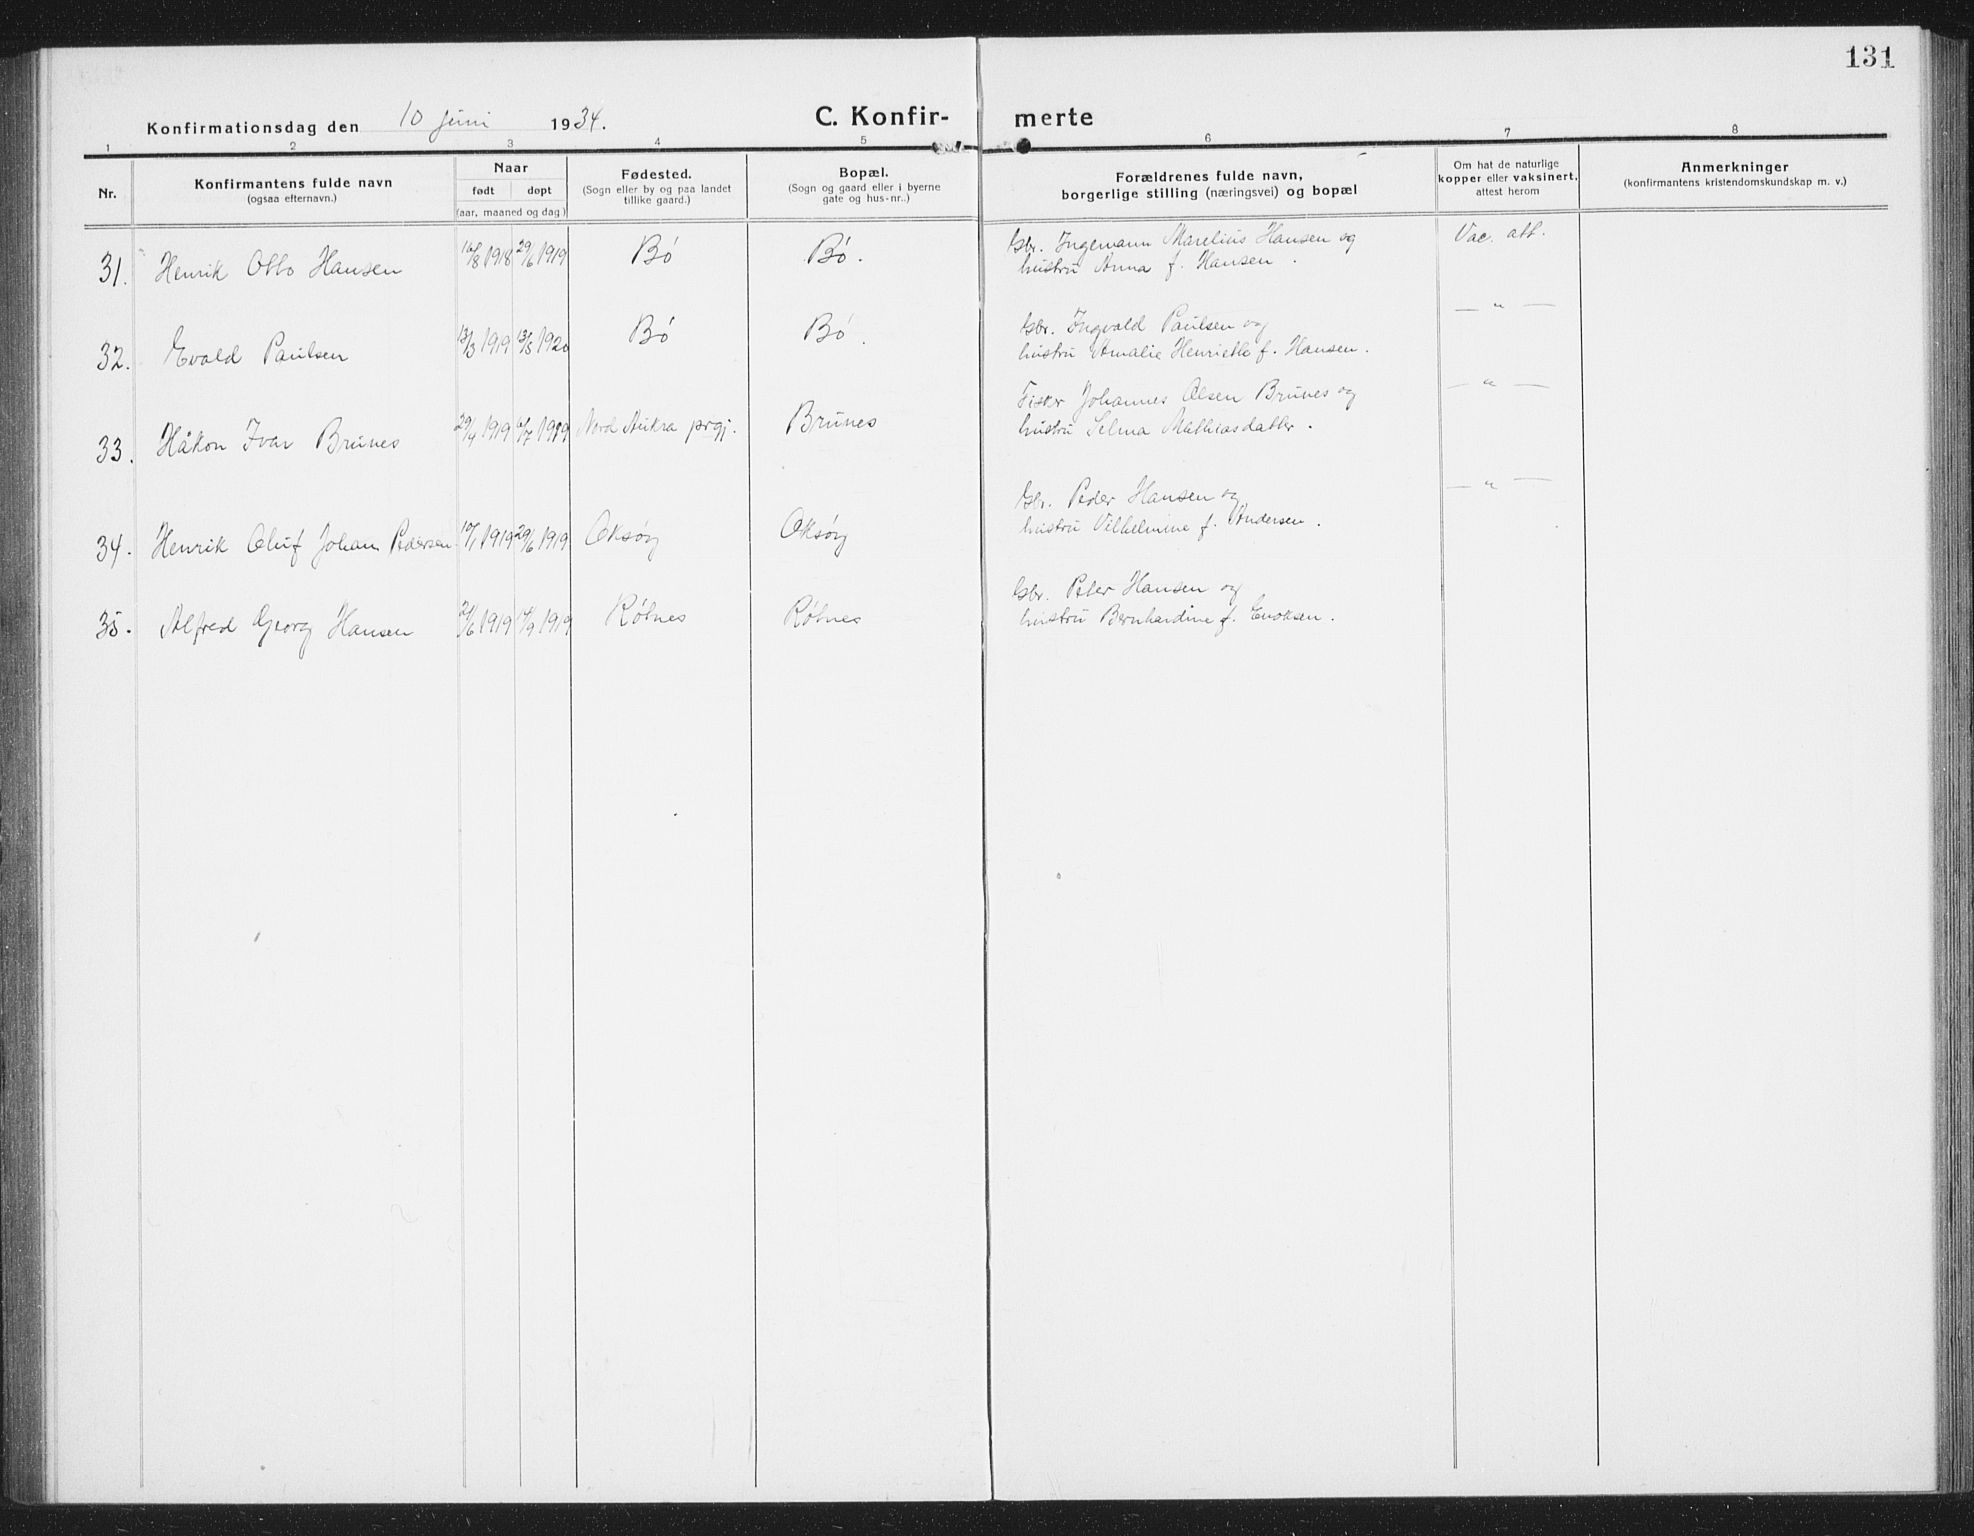 131
Konfirmationsdag den 10 juni 1934.
C. Konfirmerte
1 2 3 4 5 6 7 8
Nr.
Konfirmantens fulde navn
(ogsaa efternavn.)
Naar
født døpt
(aar, maaned og dag)
Fødested.
(Sogn eller by og paa landet
tillike gaard.)
Bopæl.
(Sogn og gaard eller i byerne
gate og hus-nr..)
Forældrenes fulde navn,
borgerlige stilling (næringsvei) og bopæl
Om hat de naturlige
kopper eller vaksinert,
attest herom
Anmerkninger
(konfirmantens kristendomskundskap m. v.)
31. Henrik Otto Hansen 16/8 1918 29/6 1919 Bó Bó.
Gbr. Ingemann Marelius Hansen og
hustru Anna f. Hansen.
Vac. att.
32. Evald Paulsen 13/3 1919 13/5 1920 Bó Bó.
Gbr. Ingvald Paulsen og
hustru Amalie Henriette f. Hansen.
— " —
33. Håkon Ivar Brunes 29/4 1919 6/7 1919 Nord Aukra prgj. Brunes
Fisker Johannes Olsen Brunes og
hustru Selma Mathiasdatter.
— " —
34. Henrik Oluf Johan Pedersen 10/1 1919 29/6 1919 Oksóy Oksóy
Gbr. Peder Hansen og
hustru Vilhelmine f. Andersen.
— " —
35. Alfred Georg Hansen 21/6 1919 14/9 1919 Rótnes Rótnes
Gbr. Peter Hansen og
hustru Bernhardine f. Enoksen.